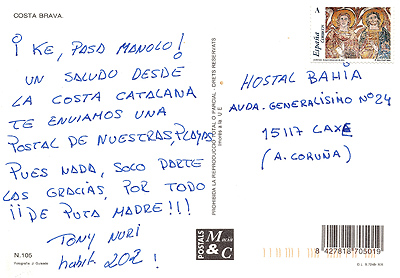 COSTA BRAVA.
¡ KE, PASA MANOLO!
UN SALUDO DESDE
LA COSTA CATALANA
TE ENVIAMOS UNA
POSTAL DE NUESTRAS, PLAYAS
PUES NADA, SOLO DARTE
LAS GRACIAS, POR TODO
¡¡¡DE PUTA MADRE!!!
TONY NURI
habit 202!
N.105
PROHIBIDA LA REPRODUCCION TOTAL O PARCIAL
POSTALS
M&C
A
España
HOSTAL BAHIA
AVDA. GENERALISIMO Nº 24
15117 LAXE
(A. CORUÑA)
8 427818 705019